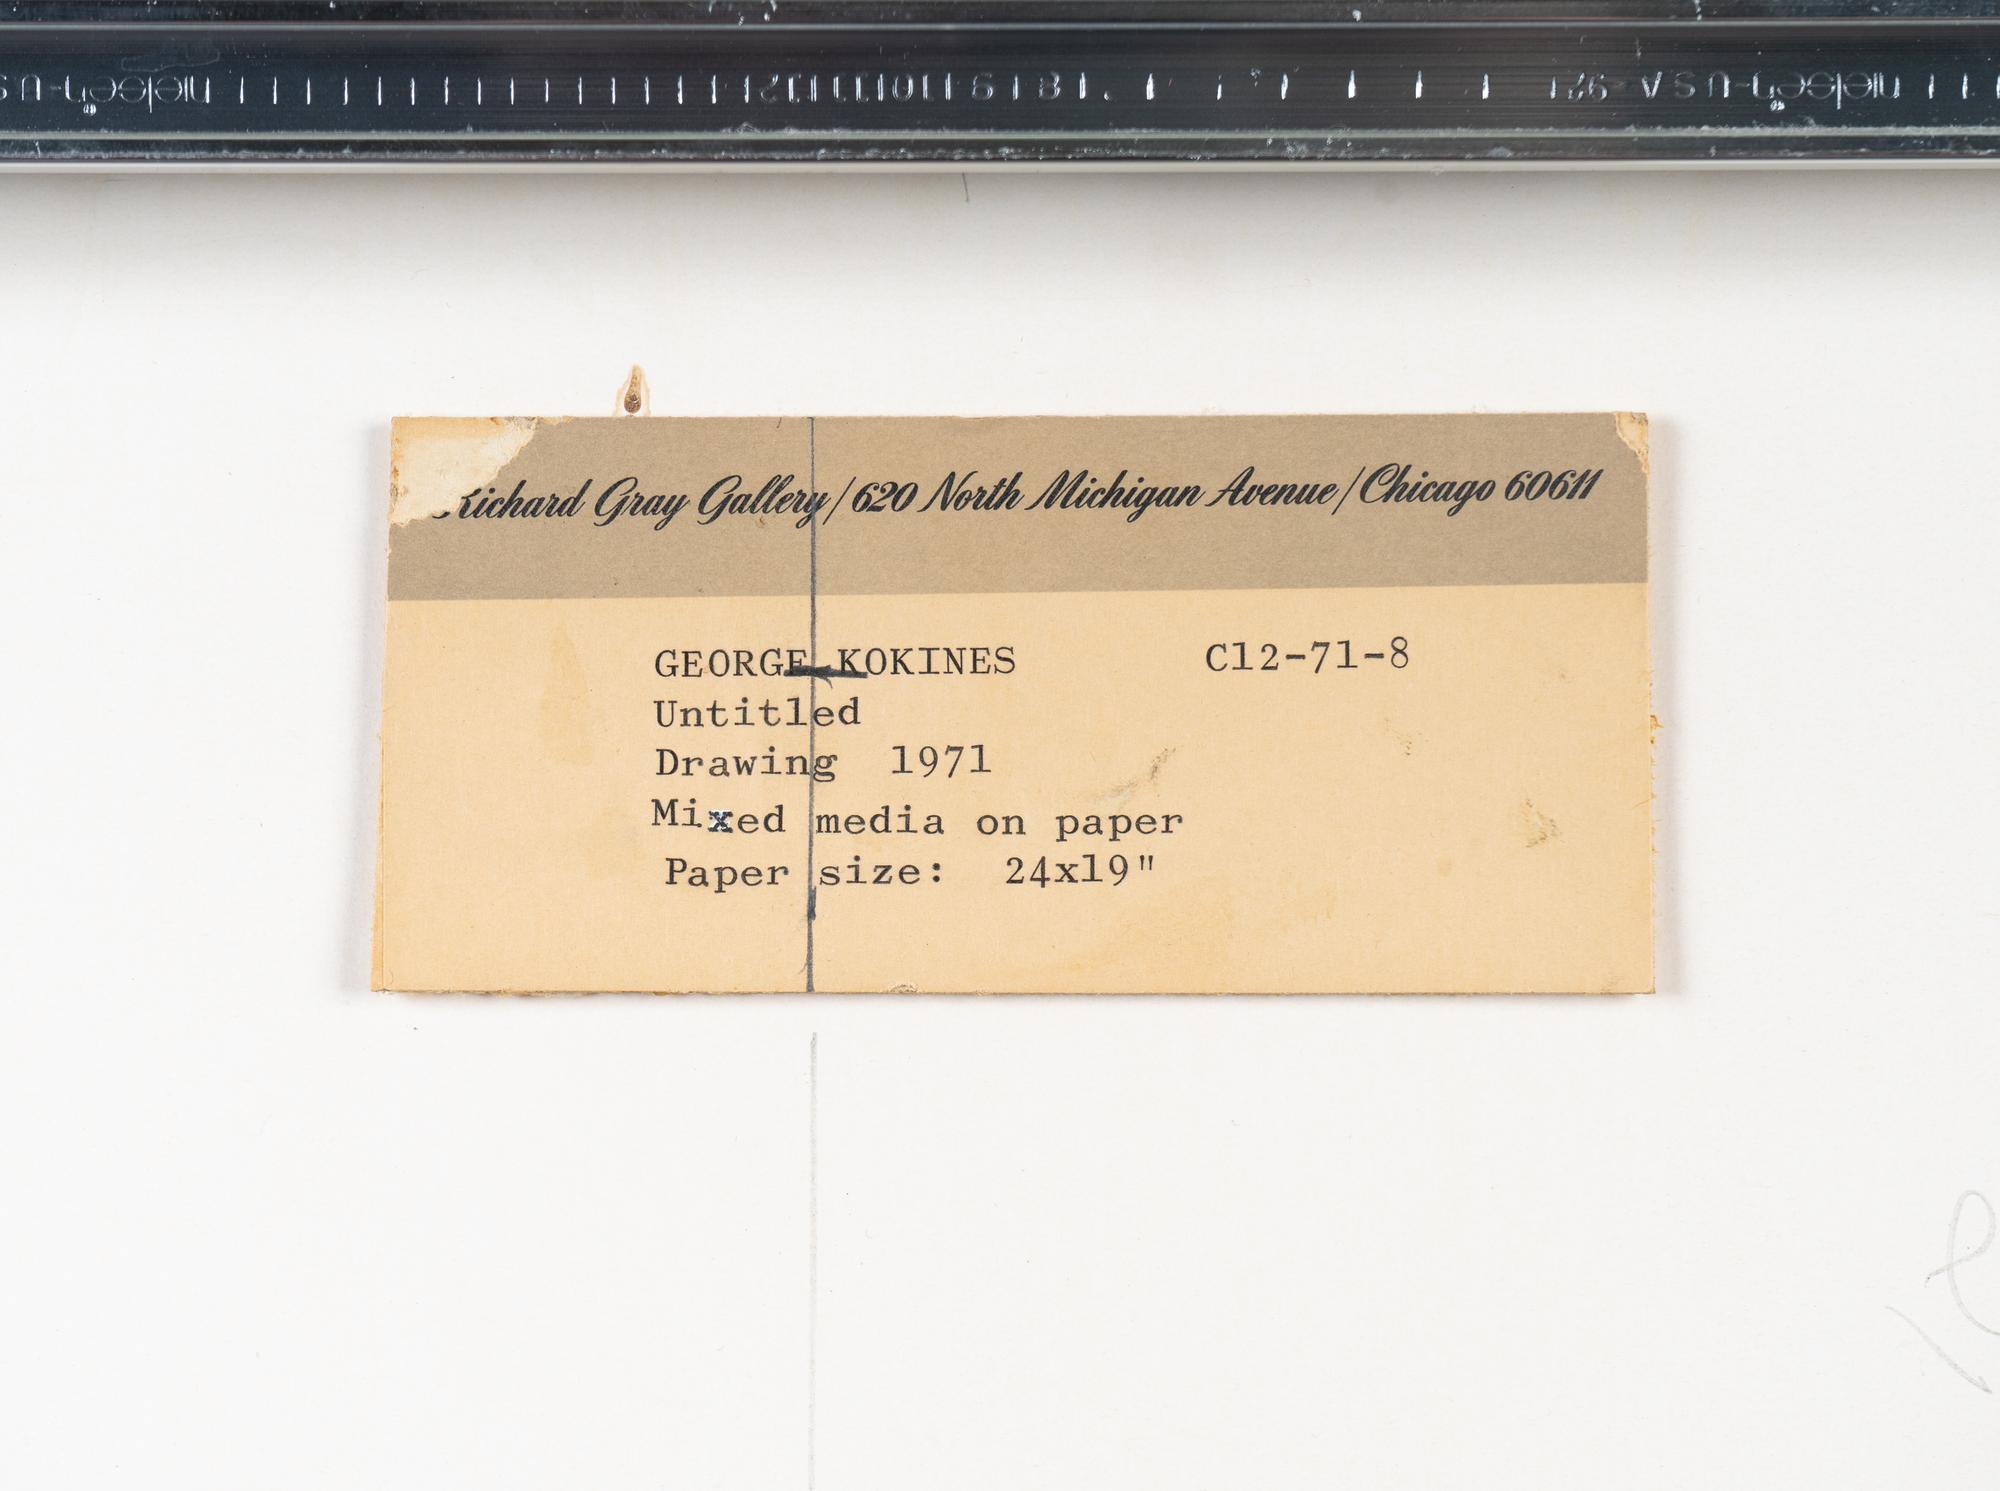 nielsen-U.S.A
Richard Gray Gallery/620 North Michigan Avenue/Chicago 60611
GEORGE KOKINES C12-71-8
Untitled
Drawing 1971
Mixed media on paper
Paper size: 24x19"